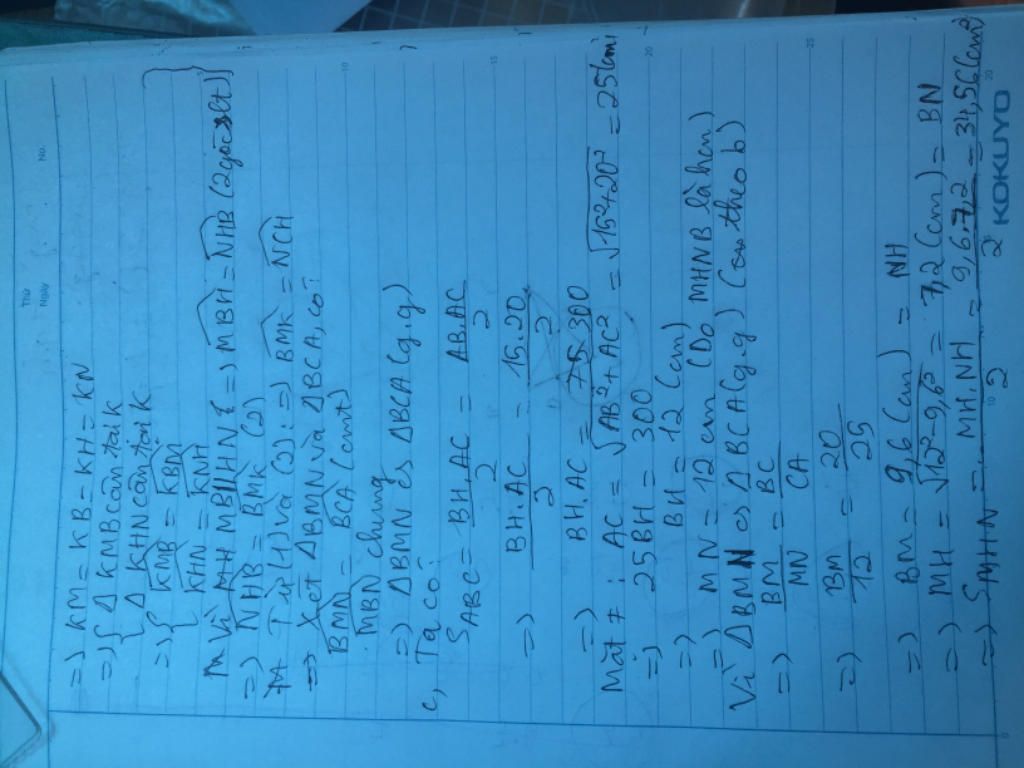 Thứ
Ngày
No.
=> KM = KB = KH = KN
=> { Δ KMB cân tại K
{ Δ KHN cân tại K
=> { KMB = KBM }
{ KHN = KNH }
Vì MB // HN => MBH = NHB (2 góc slt)
=> NHB = BMK (2)
Từ (1) và (2) => BMK = NCH
=> Xét ΔBMN và ΔBCA, có:
BMN = BCA (cmt)
MBN chung
=> ΔBMN ∽ ΔBCA (g.g)
c, Ta có:
SABC = BH.AC/2 = AB.AC/2
=> BH.AC/2 = 15.20/2
=> BH.AC = 300
Mặt ≠ : AC = √AB²+AC² = √15²+20² = 25(cm)
=> 25BH = 300
=> BH = 12 (cm)
=> MN = 12 cm (Do MHNB là hcn)
Vì ΔBMN ∽ ΔBCA (g.g) (Cm theo b)
=> BM/MN = BC/CA
=> BM/12 = 20/25
=> BM = 9,6 (cm) = NH
=> MH = √12²-9,6² = 7,2 (cm) = BN
=> SMHN = MH.NH/2 = 9,6.7,2/2 = 34,56(cm²)
KOKUYO